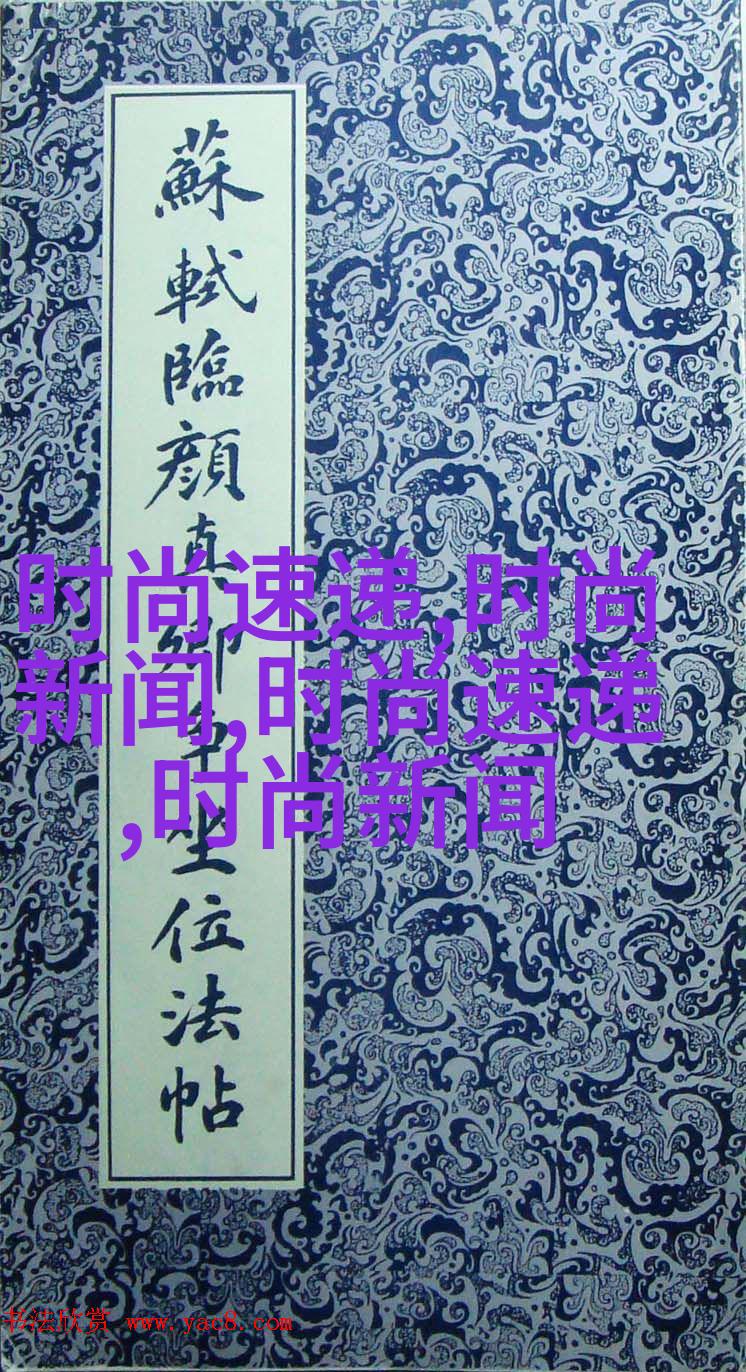 蘇軾臨顔真卿争坐位法帖
时尚速递,时尚
新闻,时尚速递
,时尚新闻
书法欣赏 www.yac8.com